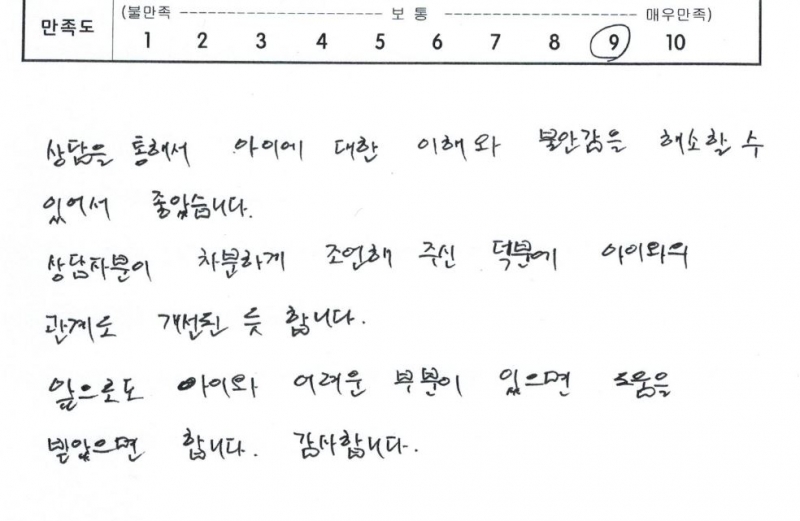 (불만족 ---------------------- 보 통 --------------------- 매우만족)
만족도 1 2 3 4 5 6 7 8 9 10
상담을 통해서 아이에 대한 이해와 불안감을 해소할 수
있어서 좋았습니다.
상담자분이 차분하게 조언해 주신 덕분에 아이와의
관계도 개선된 듯 합니다.
앞으로도 아이와 어려운 부분이 있으면 도움을
받았으면 합니다. 감사합니다.